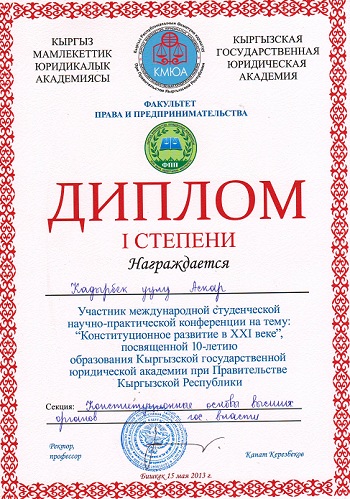 КЫРГЫЗ
МАМЛЕКЕТТИК
ЮРИДИКАЛЫК
АКАДЕМИЯСЫ
КМЮА
КЫРГЫЗСКАЯ
ГОСУДАРСТВЕННАЯ
ЮРИДИЧЕСКАЯ
АКАДЕМИЯ
ФАКУЛЬТЕТ
ПРАВА И ПРЕДПРИНИМАТЕЛЬСТВА
ФПП
ДИПЛОМ
I СТЕПЕНИ
Награждается
Кадырбек уулу Аскар
Участник международной студенческой
научно-практической конференции на тему:
“Конституционное развитие в XXI веке”,
посвященной 10-летию
образования Кыргызской государственной
юридической академии при Правительстве
Кыргызской Республики
Секция: Конституционные основы высших
органов гос. власти
Ректор,
профессор
Канат Керезбеков
Бишкек 15 мая 2013 г.